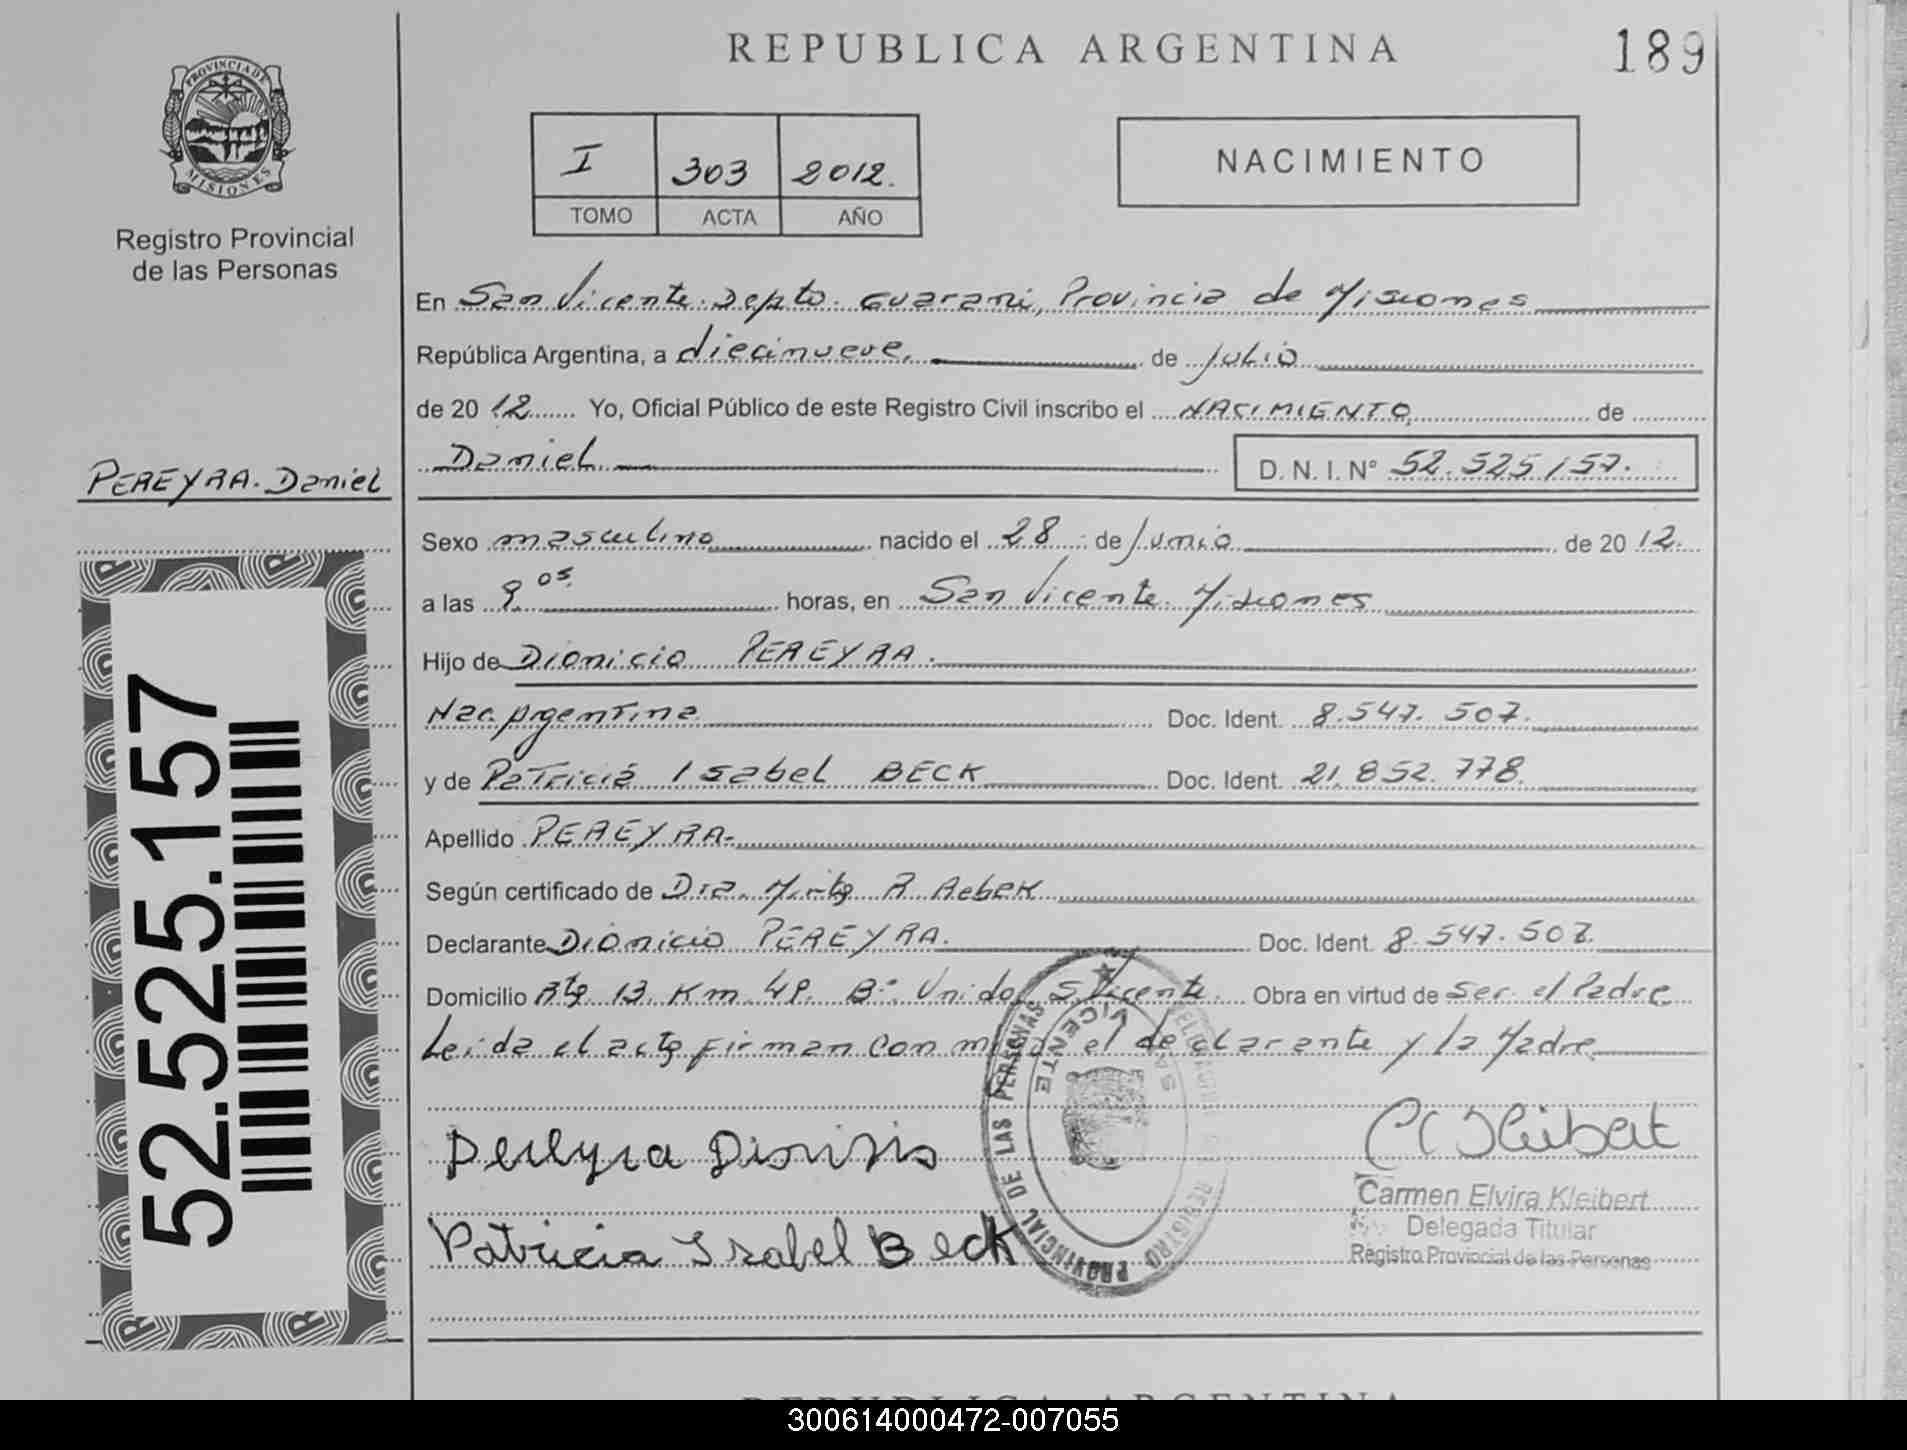 REPUBLICA ARGENTINA
189
PROVINCIA DE
MISIONES
Registro Provincial
de las Personas
I 303 2012.
TOMO ACTA AÑO
NACIMIENTO
En San Vicente. Depto. Guarani, Provincia de Misiones
República Argentina, a diecinueve, de Julio
de 2012 Yo, Oficial Público de este Registro Civil inscribo el NACIMIENTO, de
Daniel D. N. I. N° 52.525157.
PEREYRA. Daniel
Sexo masculino nacido el 28 de Junio de 2012.
a las 9 05 horas, en San Vicente. Misiones
Hijo de Dionicio PEREYRA.
Nac. Argentina Doc. Ident. 8.547.507.
y de Patricia Isabel BECK Doc. Ident. 21.852.778.
Apellido PEREYRA-
Según certificado de Dra. R.
Declarante Dionicio PEREYRA. Doc. Ident. 8.547.507.
Domicilio Rta 13. Km. 49. B° Unido S. Vicente. Obra en virtud de Ser el Padre
Leida el acta firman con migo el declarante y la Madre
52.525.157
Pereyra Dionisio
Patricia Isabel Beck
REGISTRO PROVINCIAL DE LAS PERSONAS
SAN VICENTE
C Kleibert
Carmen Elvira Kleibert
Delegada Titular
Registro Provincial de las Personas
REPUBLICA ARGENTINA
300614000472-007055